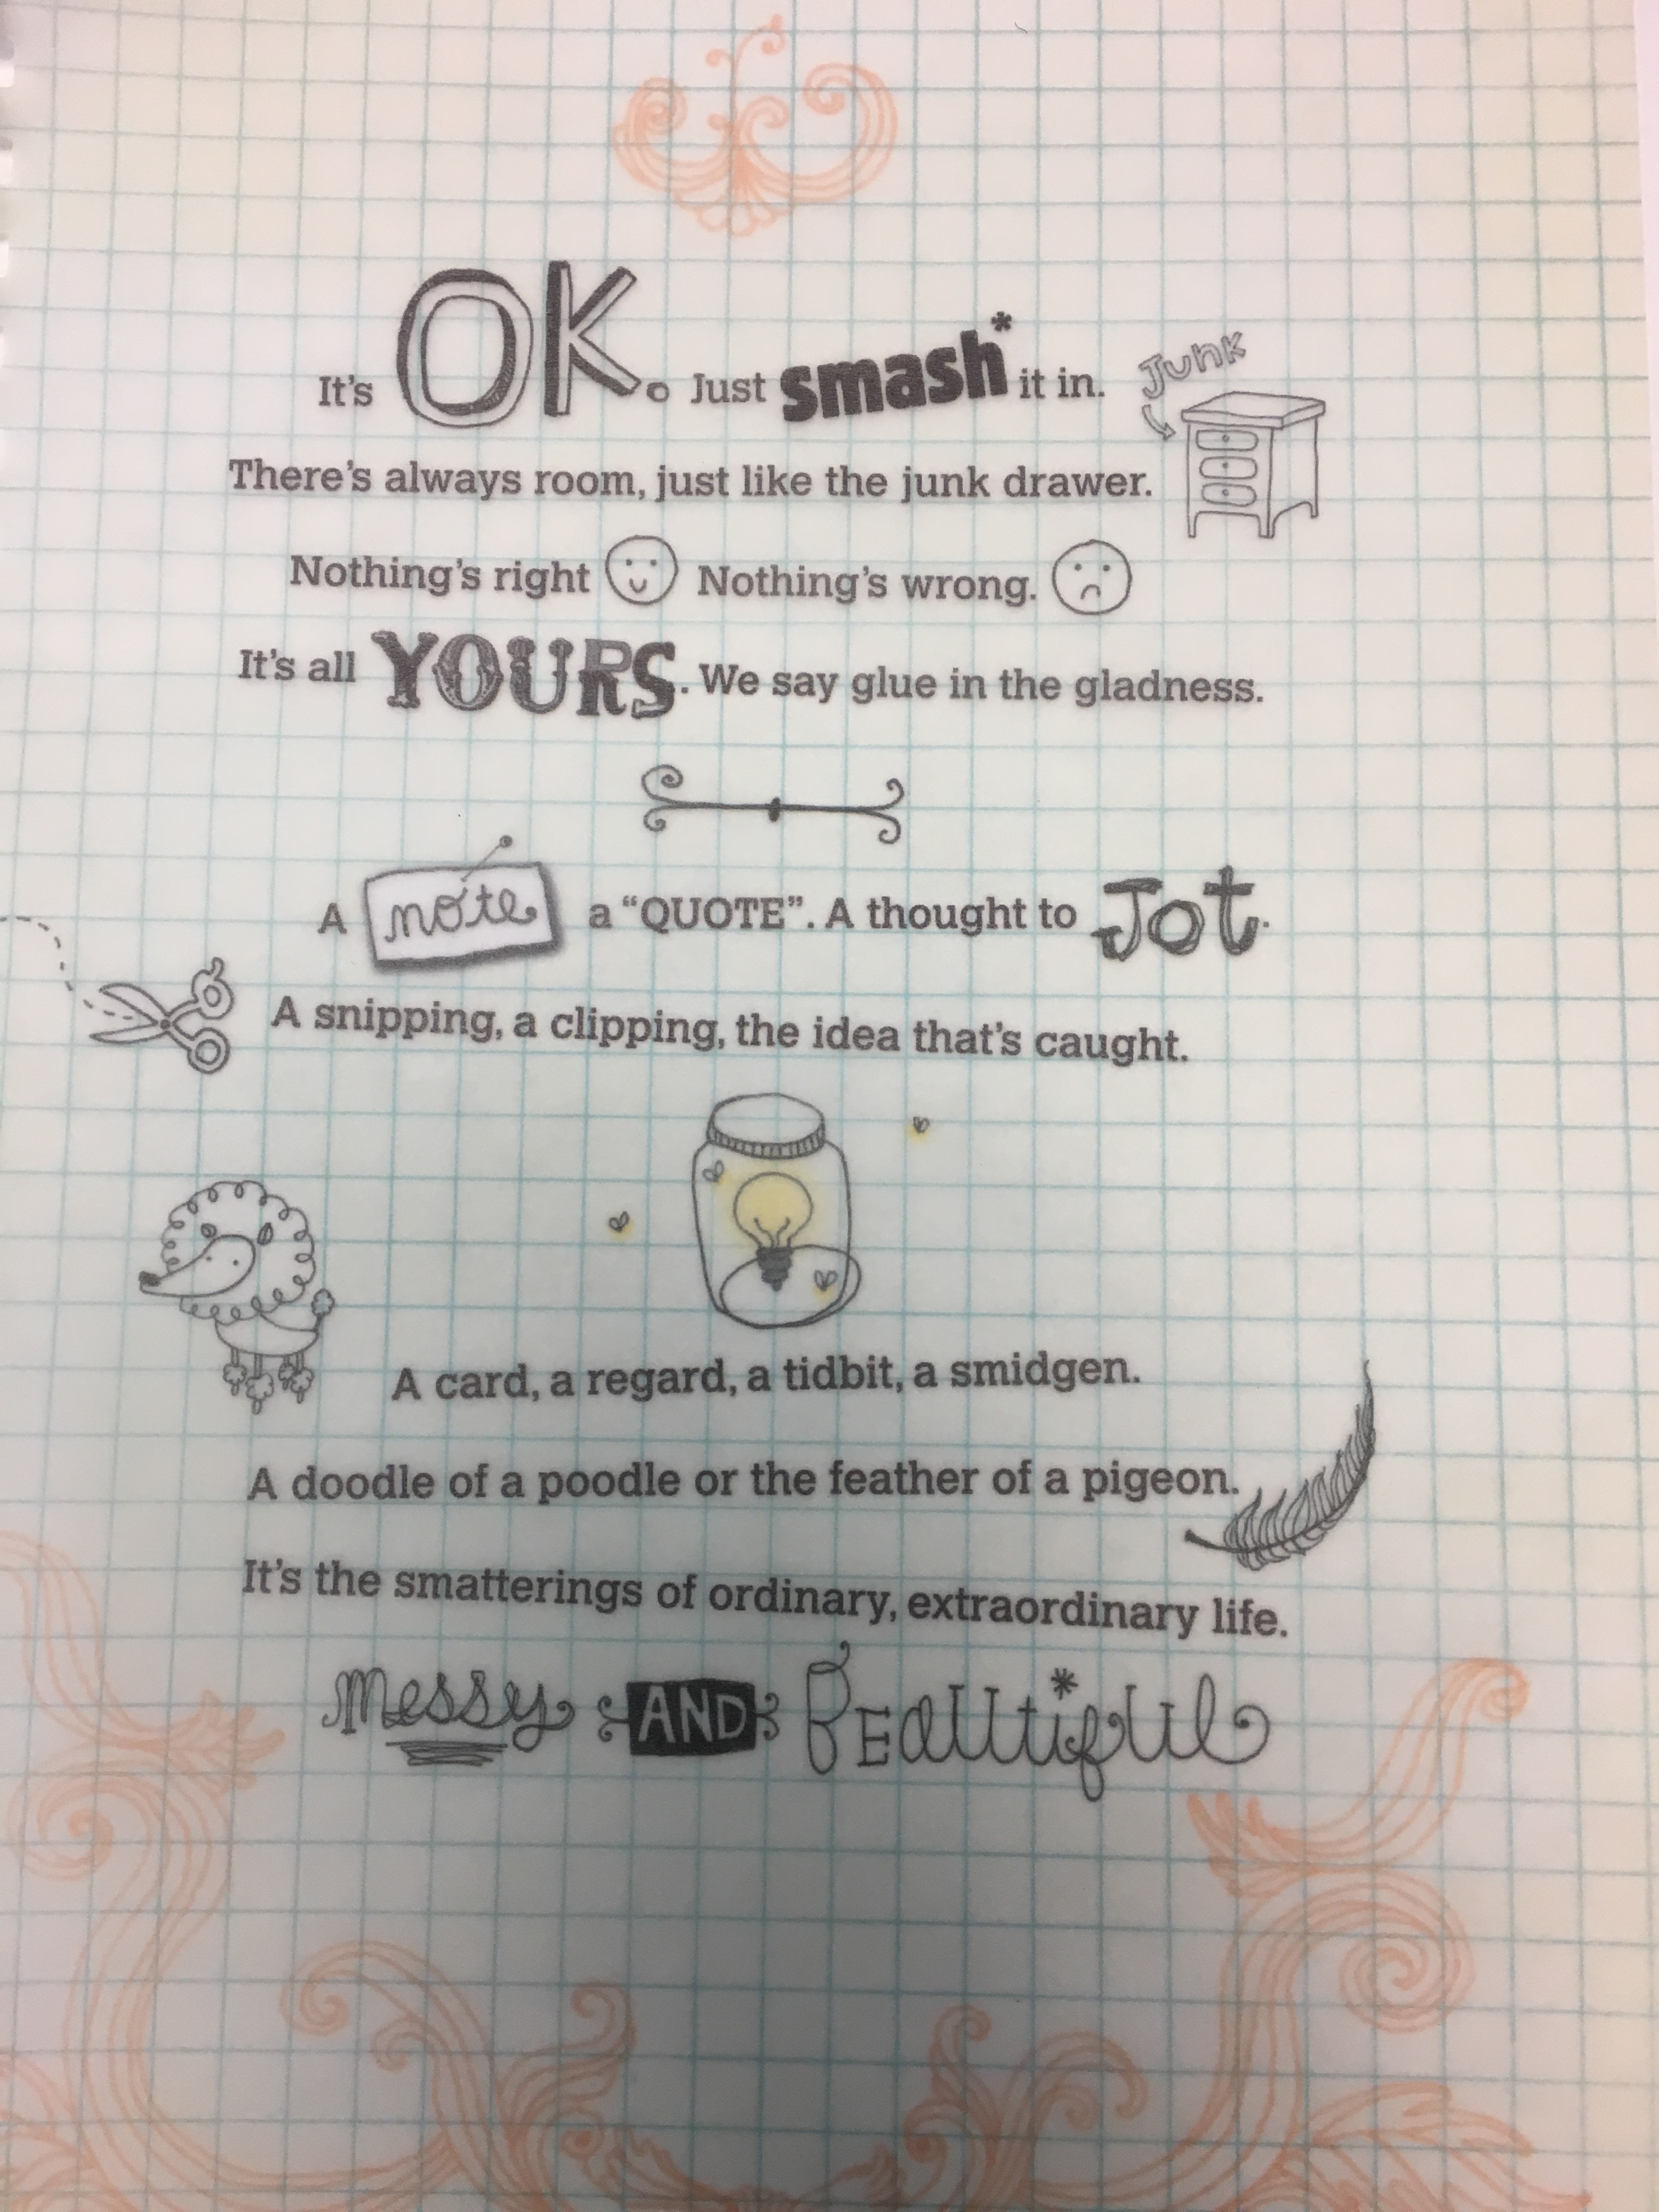 It's OK. Just smash* it in.
Junk
There's always room, just like the junk drawer.
Nothing's right Nothing's wrong.
It's all YOURS. We say glue in the gladness.
A note a “QUOTE”. A thought to Jot.
A snipping, a clipping, the idea that's caught.
A card, a regard, a tidbit, a smidgen.
A doodle of a poodle or the feather of a pigeon.
It's the smatterings of ordinary, extraordinary life.
Messy AND Beautiful